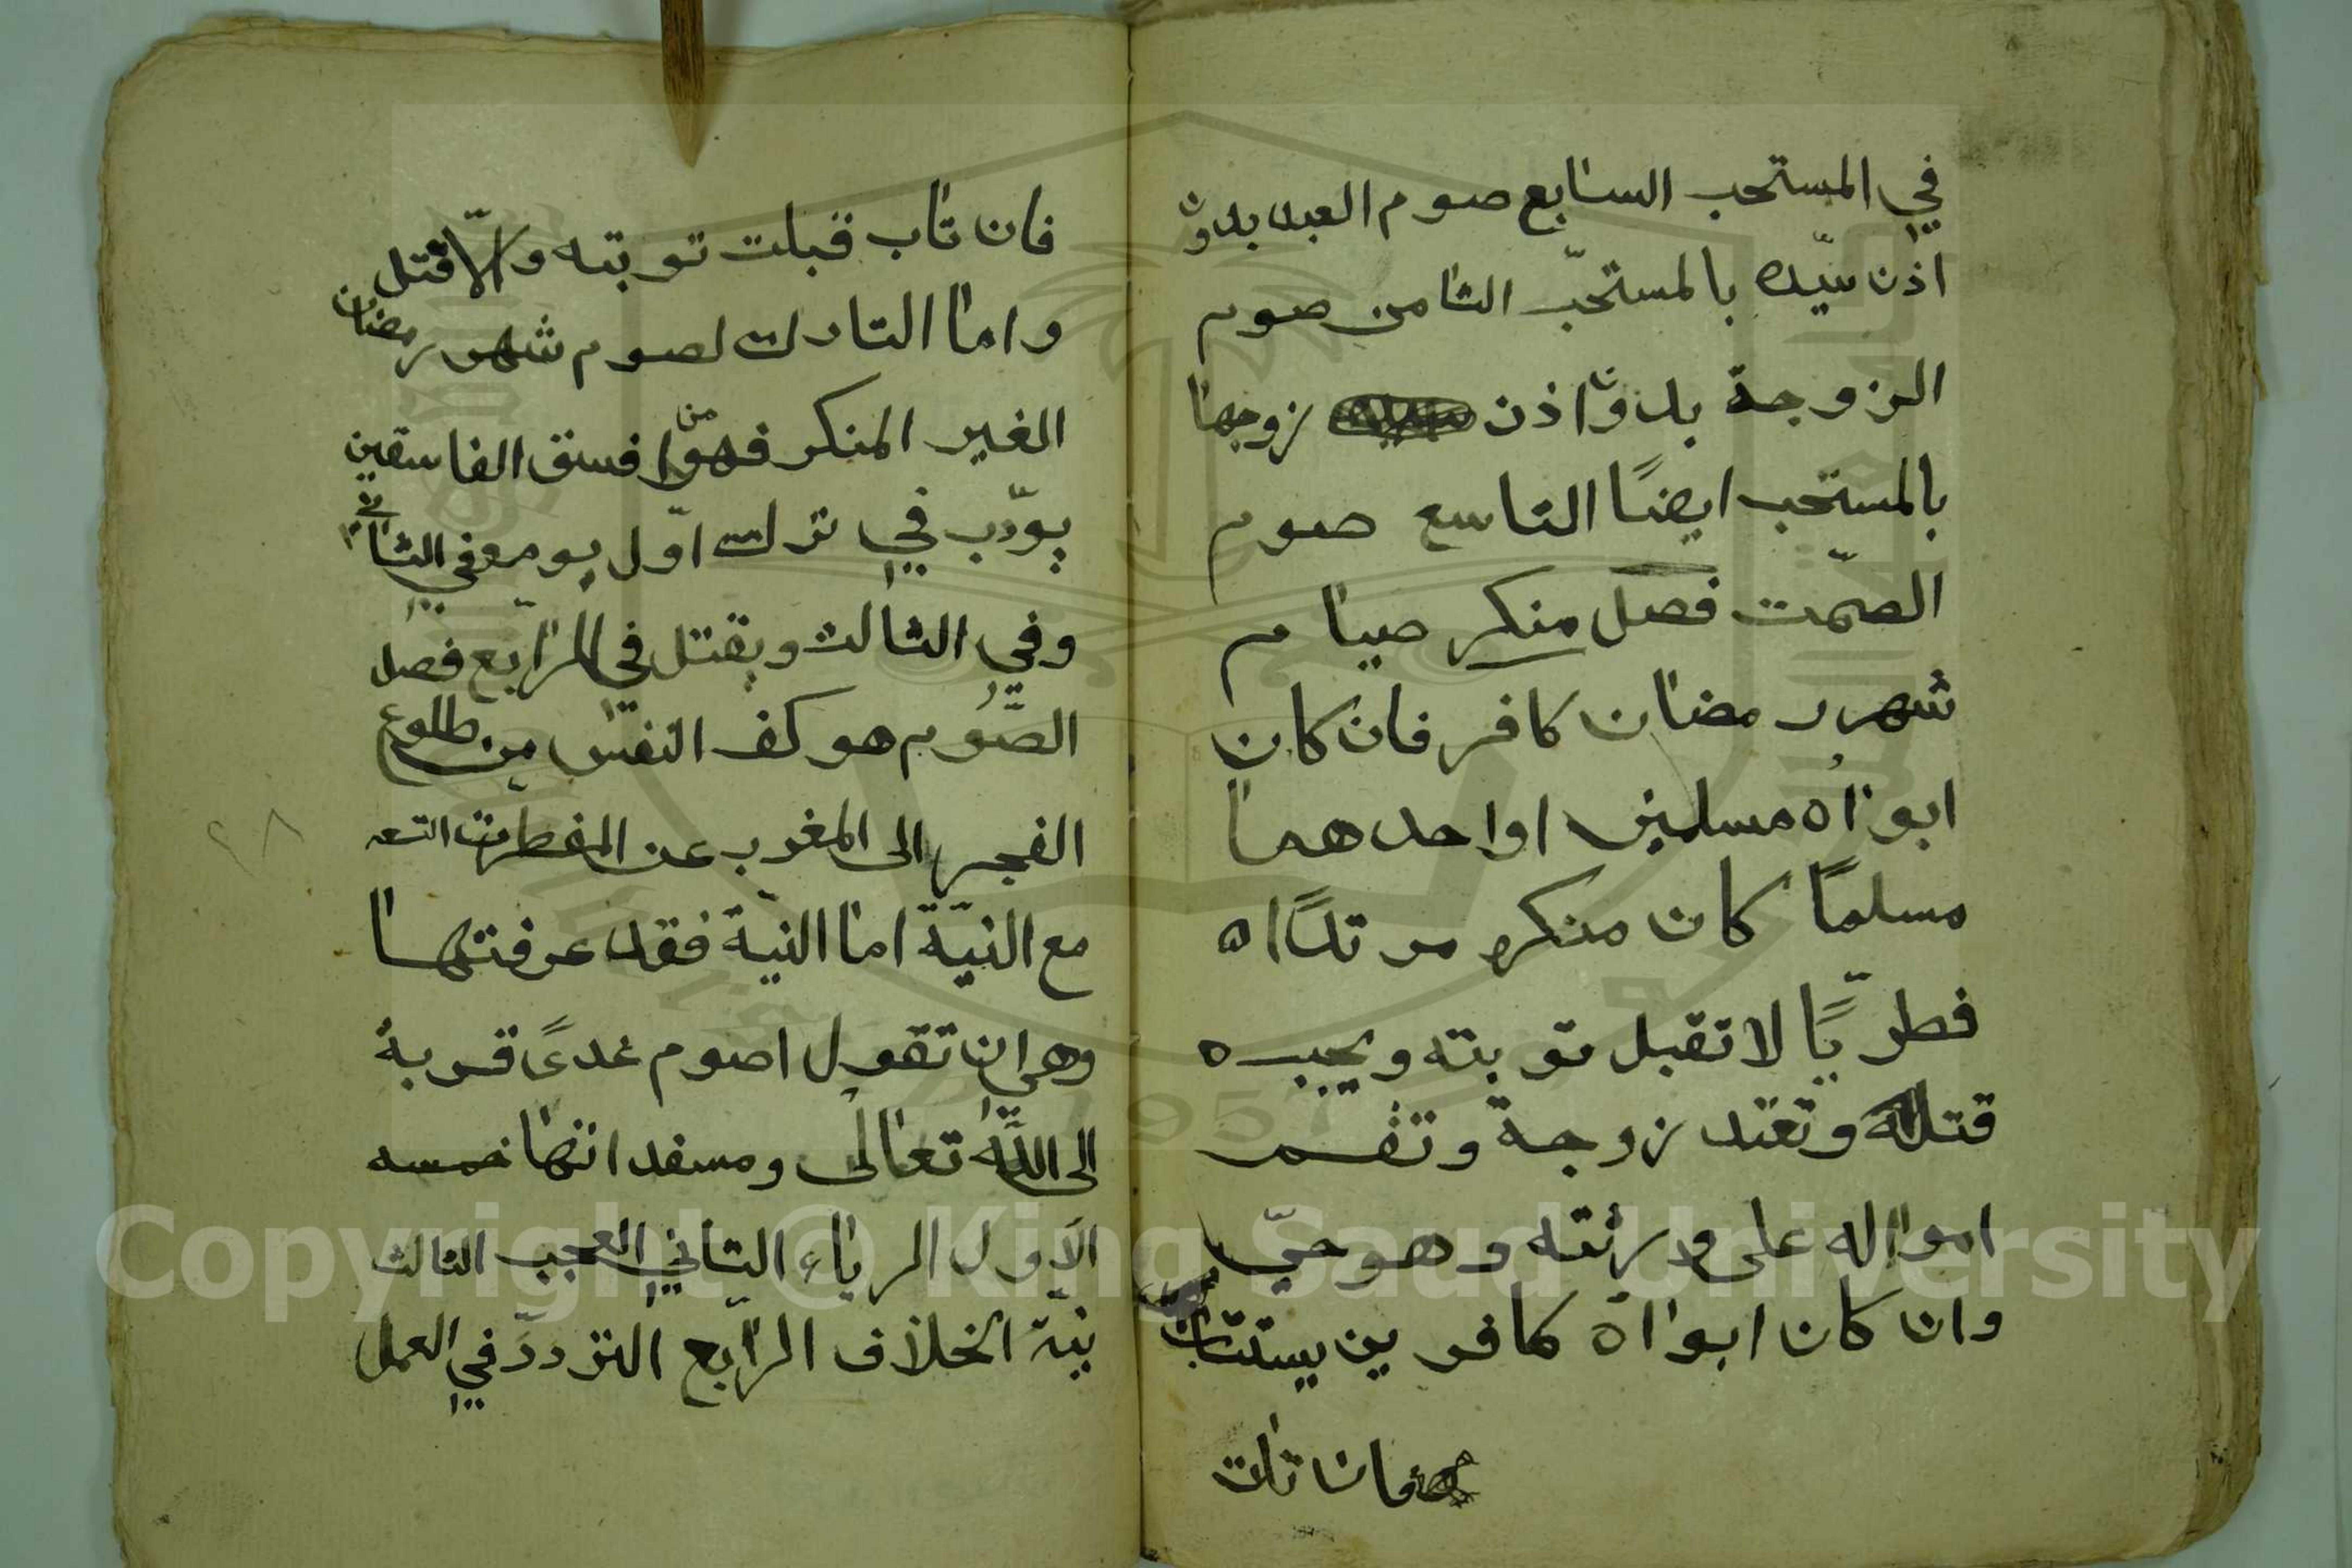 في المستحب السابع صوم العبد بدون
اذن سيّده بالمستحبّ الثامن صوم
الزوجة بدون اذن زوجها
بالمستحب ايضًا التاسع صوم
الصّمت فصل منكر صيام
شهر رمضان كافر فان كان
ابواه مسلمين او احدهما
مسلمًا كان منكره مرتدًا
فطريًا لا تقبل توبته ويجب
قتله وتعتد زوجة وتقسم
امواله على ورثته وهو حيّ
وان كان ابواه كافرين يستتاب
فان تاب
فان تاب قبلت توبته والّا قتل
واما التارك لصوم شهر رمضان
الغير المنكر فهو من افسق الفاسقين
يودّب في ترك اوّل يوم وفي الثاني
وفي الثالث ويقتل في الرابع فصل
الصّوم هو كف النفس من طلوع
الفجر الى المغرب عن المفطرات التسعه
مع النيّة اما النية فقد عرفتها
وهي ان تقول اصوم غدًا قربة
الى اللّه تعالى ومسفداتها خمسه
الاول الرياء الثاني العجب الثالث
نيّة الخلاف الرابع التردّد في العمل
٢٨
Copyright © King Saud University
1957